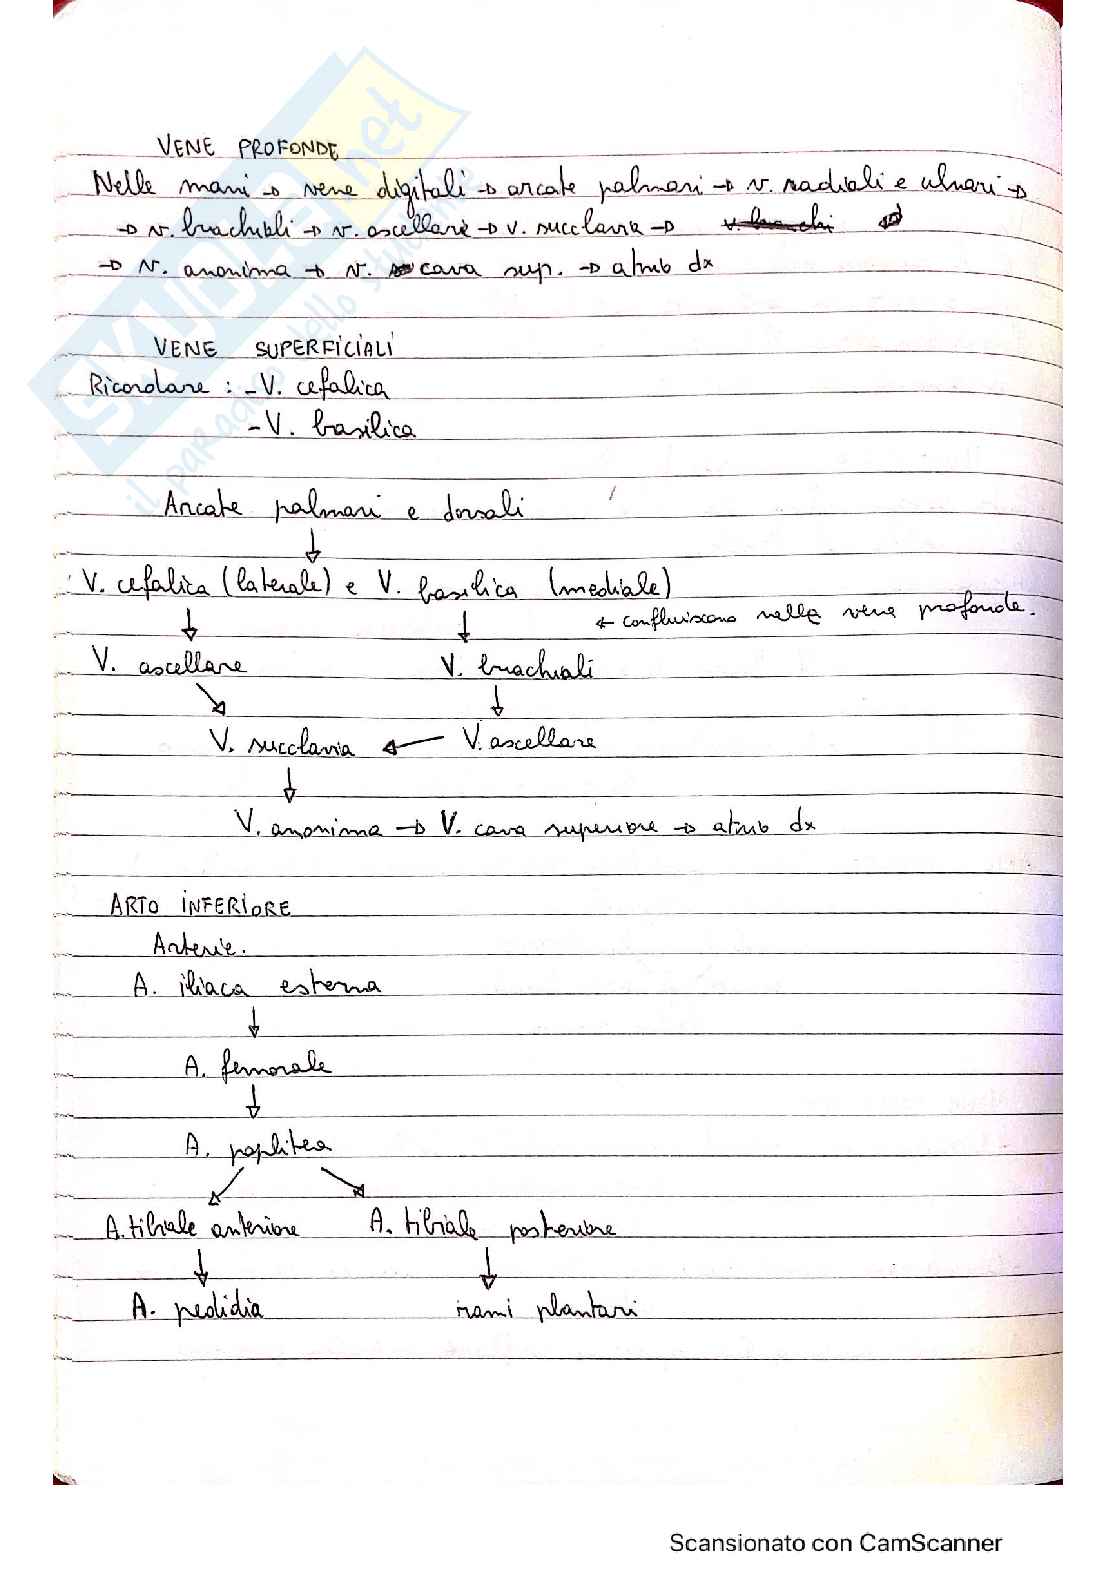 VENE PROFONDE
Nelle mani → vene digitali → arcate palmari → v. radiali e ulnari →
→ v. brachiali → v. ascellare → v. succlavia →
→ v. anonima → v. cava sup. → atrio dx
VENE SUPERFICIALI
Ricordare : - V. cefalica
- V. basilica
Arcate palmari e dorsali
↓
V. cefalica (laterale) e V. basilica (mediale)
← confluiscono nelle vene profonde.
↓ ↓
V. ascellare V. brachiali
↘ ↓
V. succlavia ← V. ascellare
↓
V. anonima → V. cava superiore → atrio dx
ARTO INFERIORE
Arterie.
A. iliaca esterna
↓
A. femorale
↓
A. poplitea
↙ ↘
A. tibiale anteriore A. tibiale posteriore
↓ ↓
A. pedidia rami plantari
SKUOLA.net
il paradiso dello studente
Scansionato con CamScanner